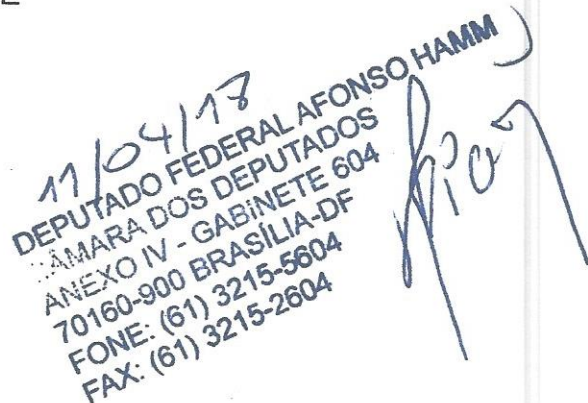 E
11/04/18
DEPUTADO FEDERAL AFONSO HAMM
CÂMARA DOS DEPUTADOS
ANEXO IV - GABINETE 604
70160-900 BRASÍLIA-DF
FONE: (61) 3215-5604
FAX: (61) 3215-2604